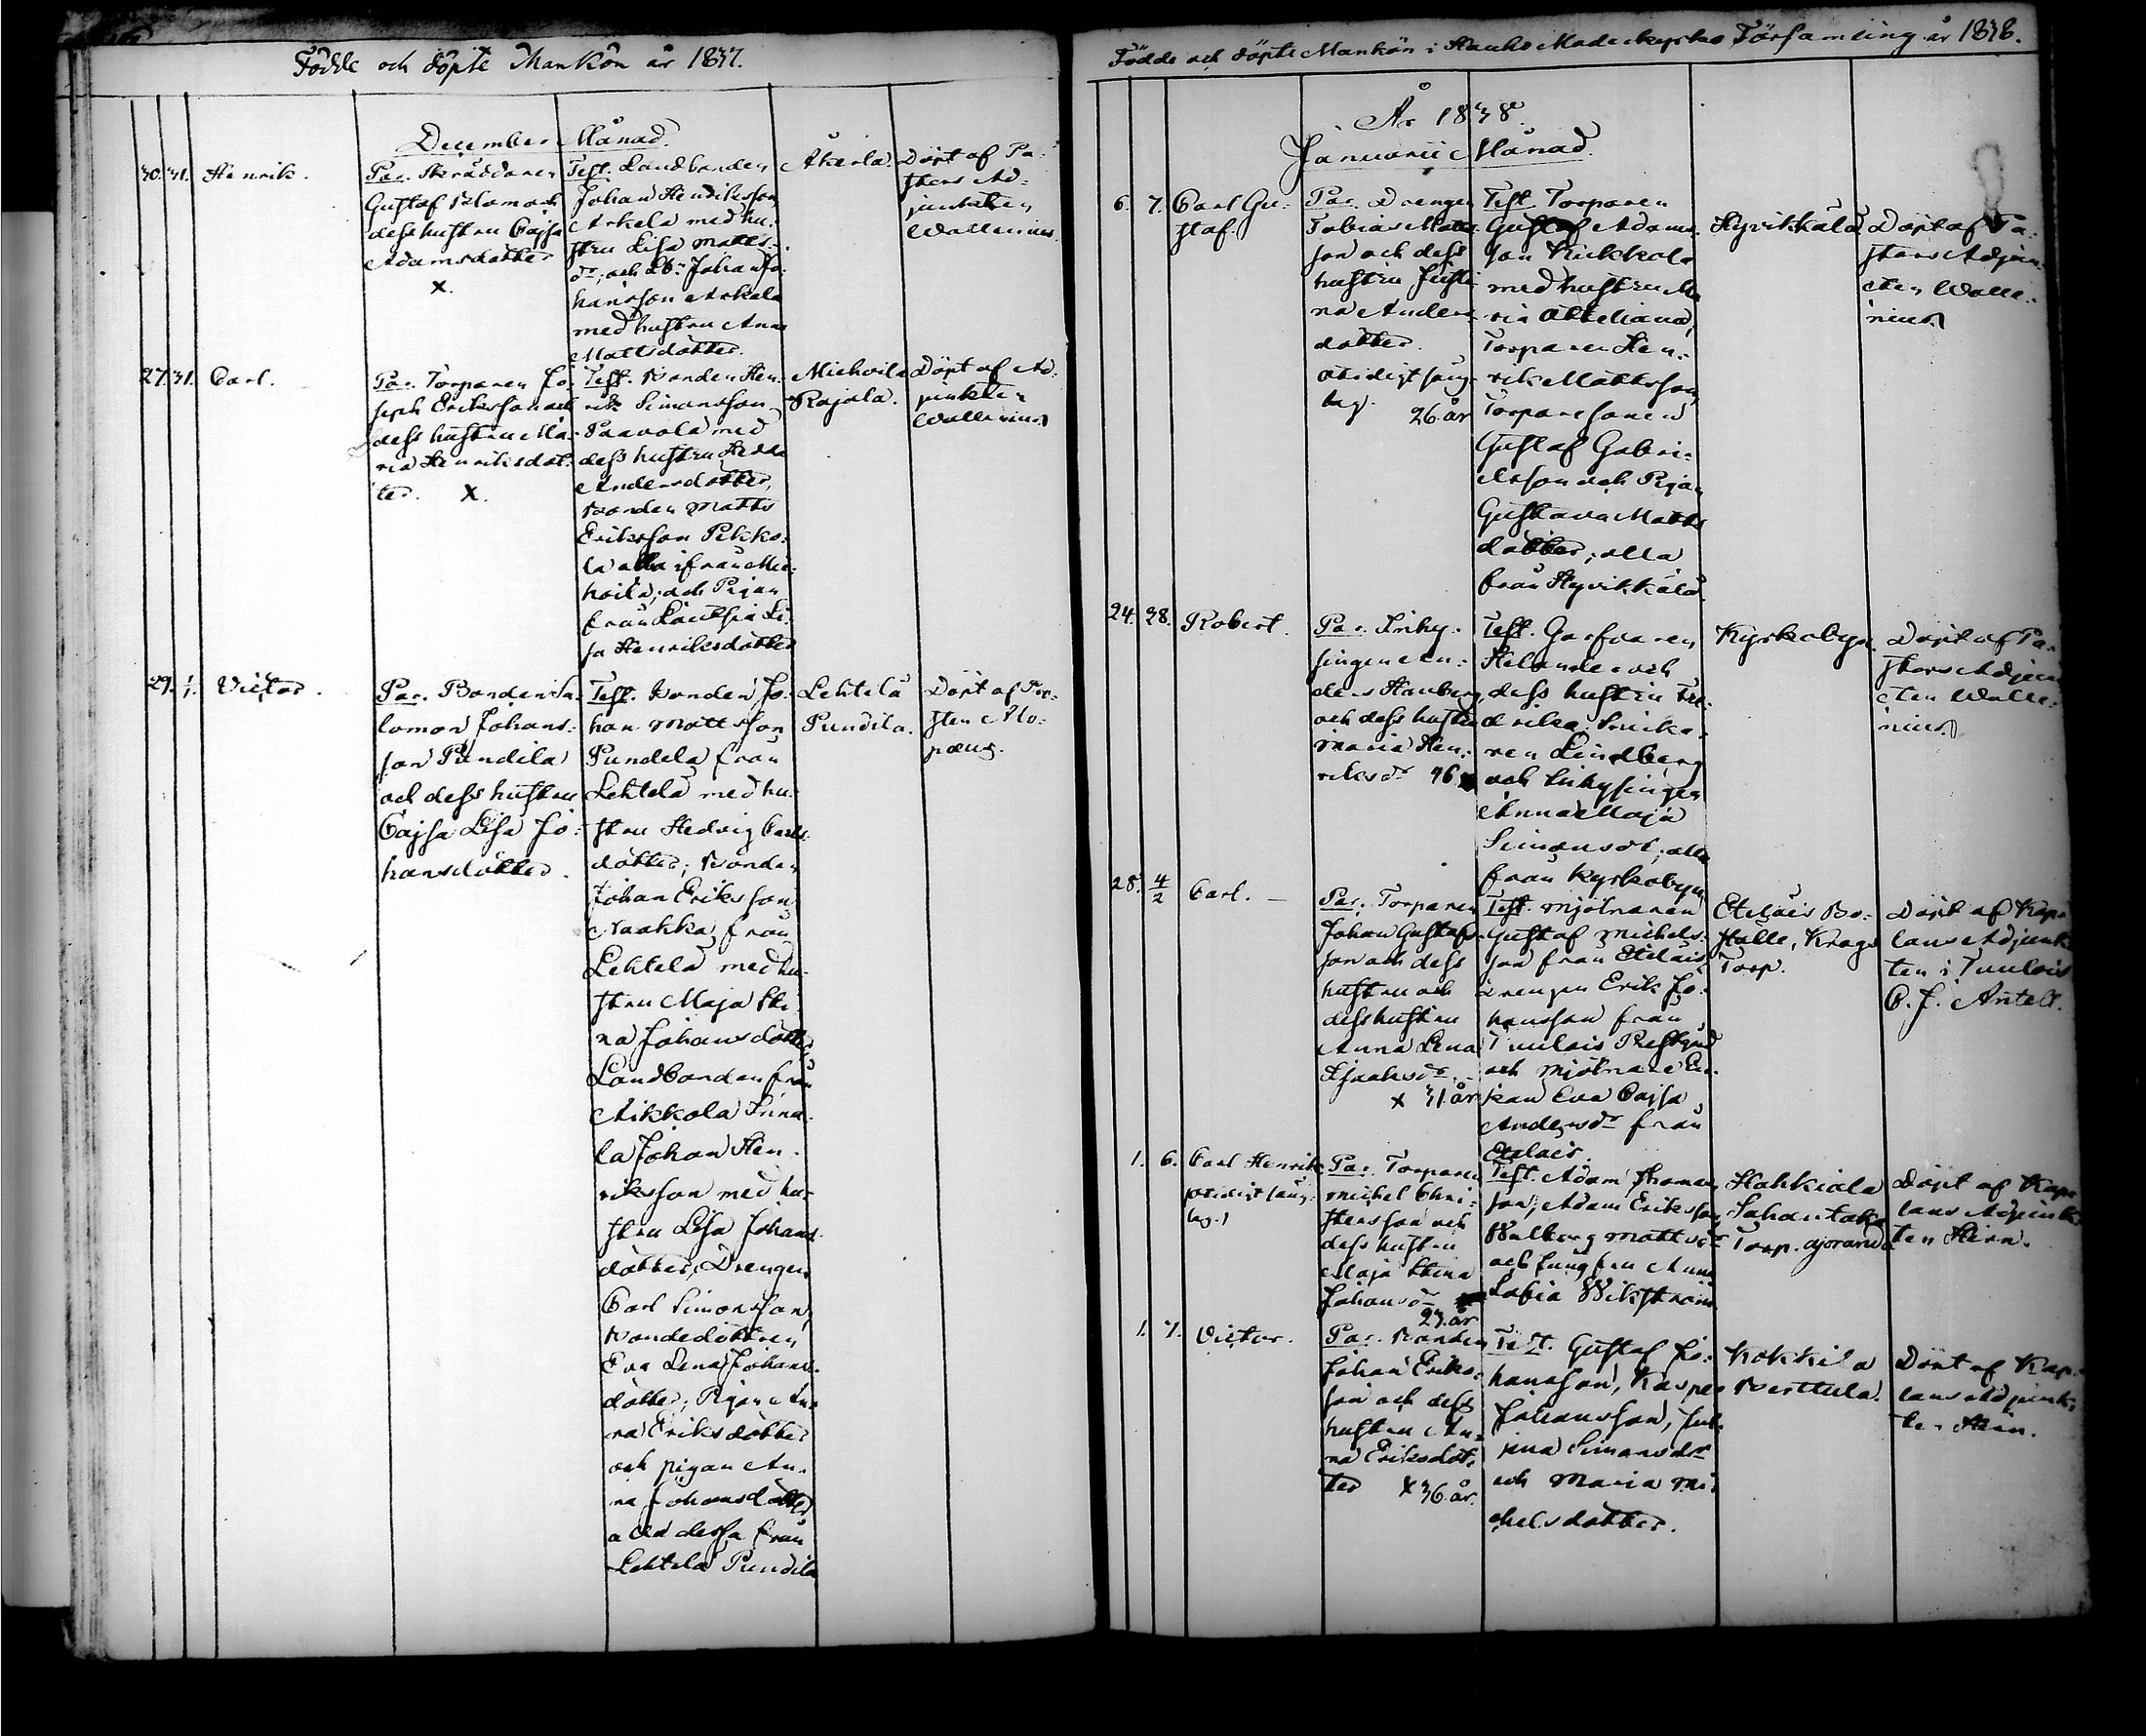 Födde och döpte Mankön år 1837.
December Månad.
30. 31. Henrik.
Par. Skräddaren
Gustaf Blom och
dess hustru Cajsa
Adamsdotter
X.
Test. Landbonden
Johan Hendriksson
Arkela med hu-
stru Lisa Matts-
dr, och Lb: Johan Jo-
hansson Arkela
med hustru Anna
Mattsdotter.
Akerla.
Döpt af Pa-
stors Ad-
juncten
Wallenius.
27. 31. Carl.
Par. Torparen Jo-
seph Eriksson och
dess hustru Ma-
ria Henriksdot-
ter. X.
Test. Bonden Hen-
rik Simonsson
Paavola med
dess hustru Hedda
Andersdotter,
Bonden Matts
Eriksson Pekko-
la alla ifrån Mie-
hoila, och Pigan
från Lautsia Li-
sa Henriksdotter
Miehoila
Rajala.
Döpt af Ad-
junkten
Wallenius
29. 1/1. Victor.
Par. Bonden Sa-
lomon Johans-
son Pundila
och dess hustru
Cajsa Lisa Jo-
hansdotter.
Test. Bonden Jo-
han Mattsson
Pundela från
Lehtela med hu-
stru Hedvig Carls-
dotter; Bonden
Johan Eriksson
Naakka från
Lehtela med hu-
stru Maja Sti-
na Johansdotter
Landbonden från
Nikkola Inna-
la Johan Hen-
riksson med hu-
stru Lisa Johans-
dotter, Drengen
Carl Simonsson,
Bondedottren
Eva Lena Johans-
dotter; Pigan An-
na Eriksdotter
och pigan An-
na Johansdotter
alla dessa från
Lehtela Pundila
Lehtela
Pundila.
Döpt af Pro-
sten Mo-
pæus.
Födde och döpte Mankön i Hauho Moderkyrko Församling år 1838.
År 1838.
Januarii Månad.
6. 7. Carl Gu-
staf.
Par. Drengen
Tobias Matts-
son och dess
hustru Justi-
na Anders-
dotter.
26 år
Test. Torparen
Gustaf Adams-
son Kukkola
med hustru Ma-
ria Ottiliana,
Torparen Hen-
rik Mattsson,
Torparesonen
Gustaf Gabri-
elsson och Pigan
Gustava Matts-
dotter; alla
från Hyvikkälä.
Hyvikkälä
Döpt af Pa-
stors Adjun-
cten Walle-
nius
24. 28. Robert.
Par. Inhy-
singen An-
ders Hauberg
och dess hustru
Maria Hen-
riksdr 46
Test. Garfvaren
Helander och
dess hustru Fre-
drika, Snicka-
ren Lindberg
och Inhysingen
Anna Maja
Simonsdr; alla
från Kyrkobyn
Kyrkobyn.
Döpt af Pa-
stors Adjun-
cten Walle-
nius
28. 4/2 Carl.
Par. Torparen
Johan Gustafs-
son och dess
hustru och
dess hustru
Anna Lena
Isaaksdr.
X 31 år
Test. Mjölnaren
Gustaf Michels-
son från Etelais
drengen Erik Jo-
hansson från
Tuulois Prestgård
och Mjölnare En-
kan Eva Cajsa
Andersdr från
Etelais.
Etelais Bo-
ställe, Krago
Torp.
Döpt af Kap-
lans Adjunk-
ten i Tuulois
C. J. Antell.
1. 6. Carl Henrik
Par. Torparen
Michel Chri-
stersson och
dess hustru
Maja Stina
Johansdr
27 år
Test. Adam Thomas-
son, Adam Eriksson,
Walborg Mattsdr
och Jungfru Anna
Sofia Wikström
Hahkiala
Sahantaka
Torp.
Döpt af Kap-
lans Adjunk-
ten Hirn.
1. 7. Victor.
Par. Bonden
Johan Eriks-
son och dess
hustru An-
na Eriksdot-
ter X 36 år.
Test. Gustaf Jo-
hansson, Kasper
Johansson, Jus-
tina Simonsdr
och Maria Mi-
chelsdotter.
Kokkila
Berttula.
Döpt af Kap-
lans Adjunk-
ten Hirn.